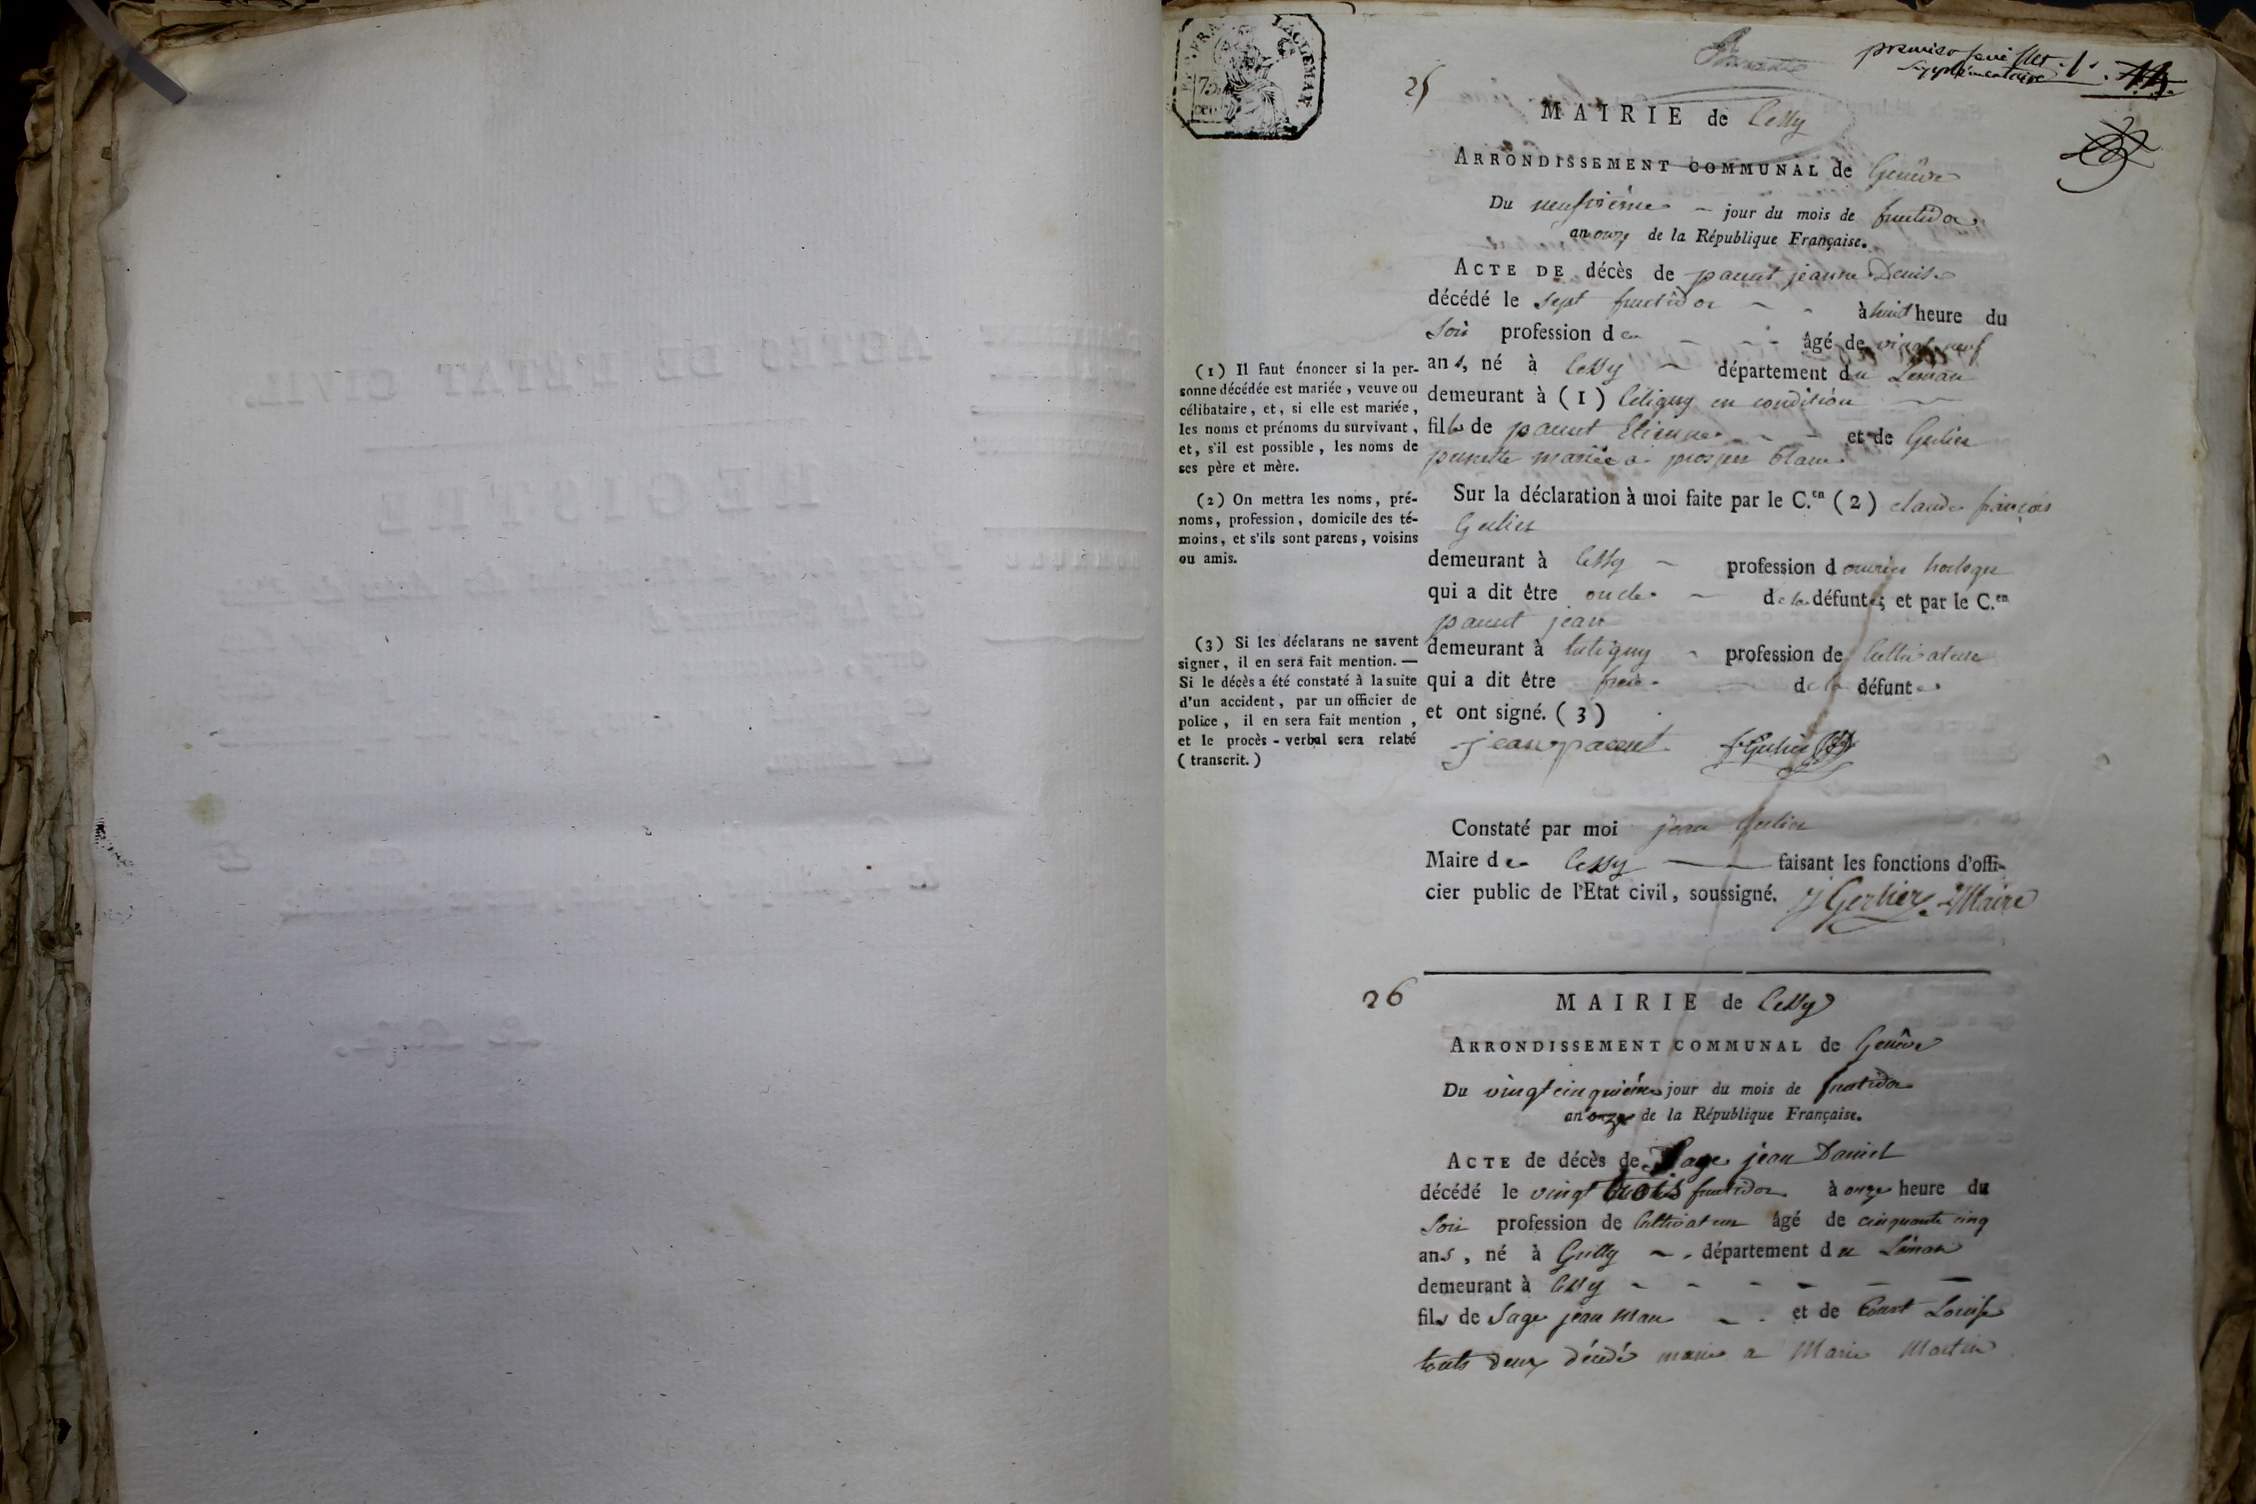 REP. FRA
75
cen
premier feuillet 1er
supplémentaire
25
MAIRIE de Cessy
ARRONDISSEMENT COMMUNAL de Genève
Du neufvième jour du mois de fructidor
an onze de la République Française.
ACTE DE décès de panut jeanne Denise
décédé le sept fructidor à huit heure du
Soir profession de âgé de vingt neuf
ans, né à Cessy département du Léman
demeurant à (1) Céligny en condition
fille de panut Etienne et de Gerlier
pernette mariée a prosper blanc
Sur la déclaration à moi faite par le C.en (2) claude françois
Gerlier
demeurant à Cessy profession d ouvrier horloger
qui a dit être oncle de la défunte; et par le C.en
panut jean
demeurant à profession de Cultivateur
qui a dit être frere de la défunte
et ont signé. (3)
jean panut f Gerlier
Constaté par moi jean Gerlier
Maire de Cessy faisant les fonctions d'offi-
cier public de l'Etat civil, soussigné. J Gerlier Maire
(1) Il faut énoncer si la per-
sonne décédée est mariée, veuve ou
célibataire, et, si elle est mariée,
les noms et prénoms du survivant,
et, s'il est possible, les noms de
ses père et mère.
(2) On mettra les noms, pré-
noms, profession, domicile des té-
moins, et s'ils sont parens, voisins
ou amis.
(3) Si les déclarans ne savent
signer, il en sera fait mention. —
Si le décès a été constaté à la suite
d'un accident, par un officier de
police, il en sera fait mention,
et le procès-verbal sera relaté
(transcrit.)
26
MAIRIE de Cessy
ARRONDISSEMENT COMMUNAL de Genève
Du vingt cinquième jour du mois de fructidor
an onze de la République Française.
ACTE de décès de Sage jean Daniel
décédé le vingt trois fructidor à onze heure du
Soir profession de Cultivateur âgé de cinquante cinq
ans, né à Grilly département du Léman
demeurant à Cessy
fils de Sage jean Marc et de Court Louise
touts deux décédé marié a Marie Martin